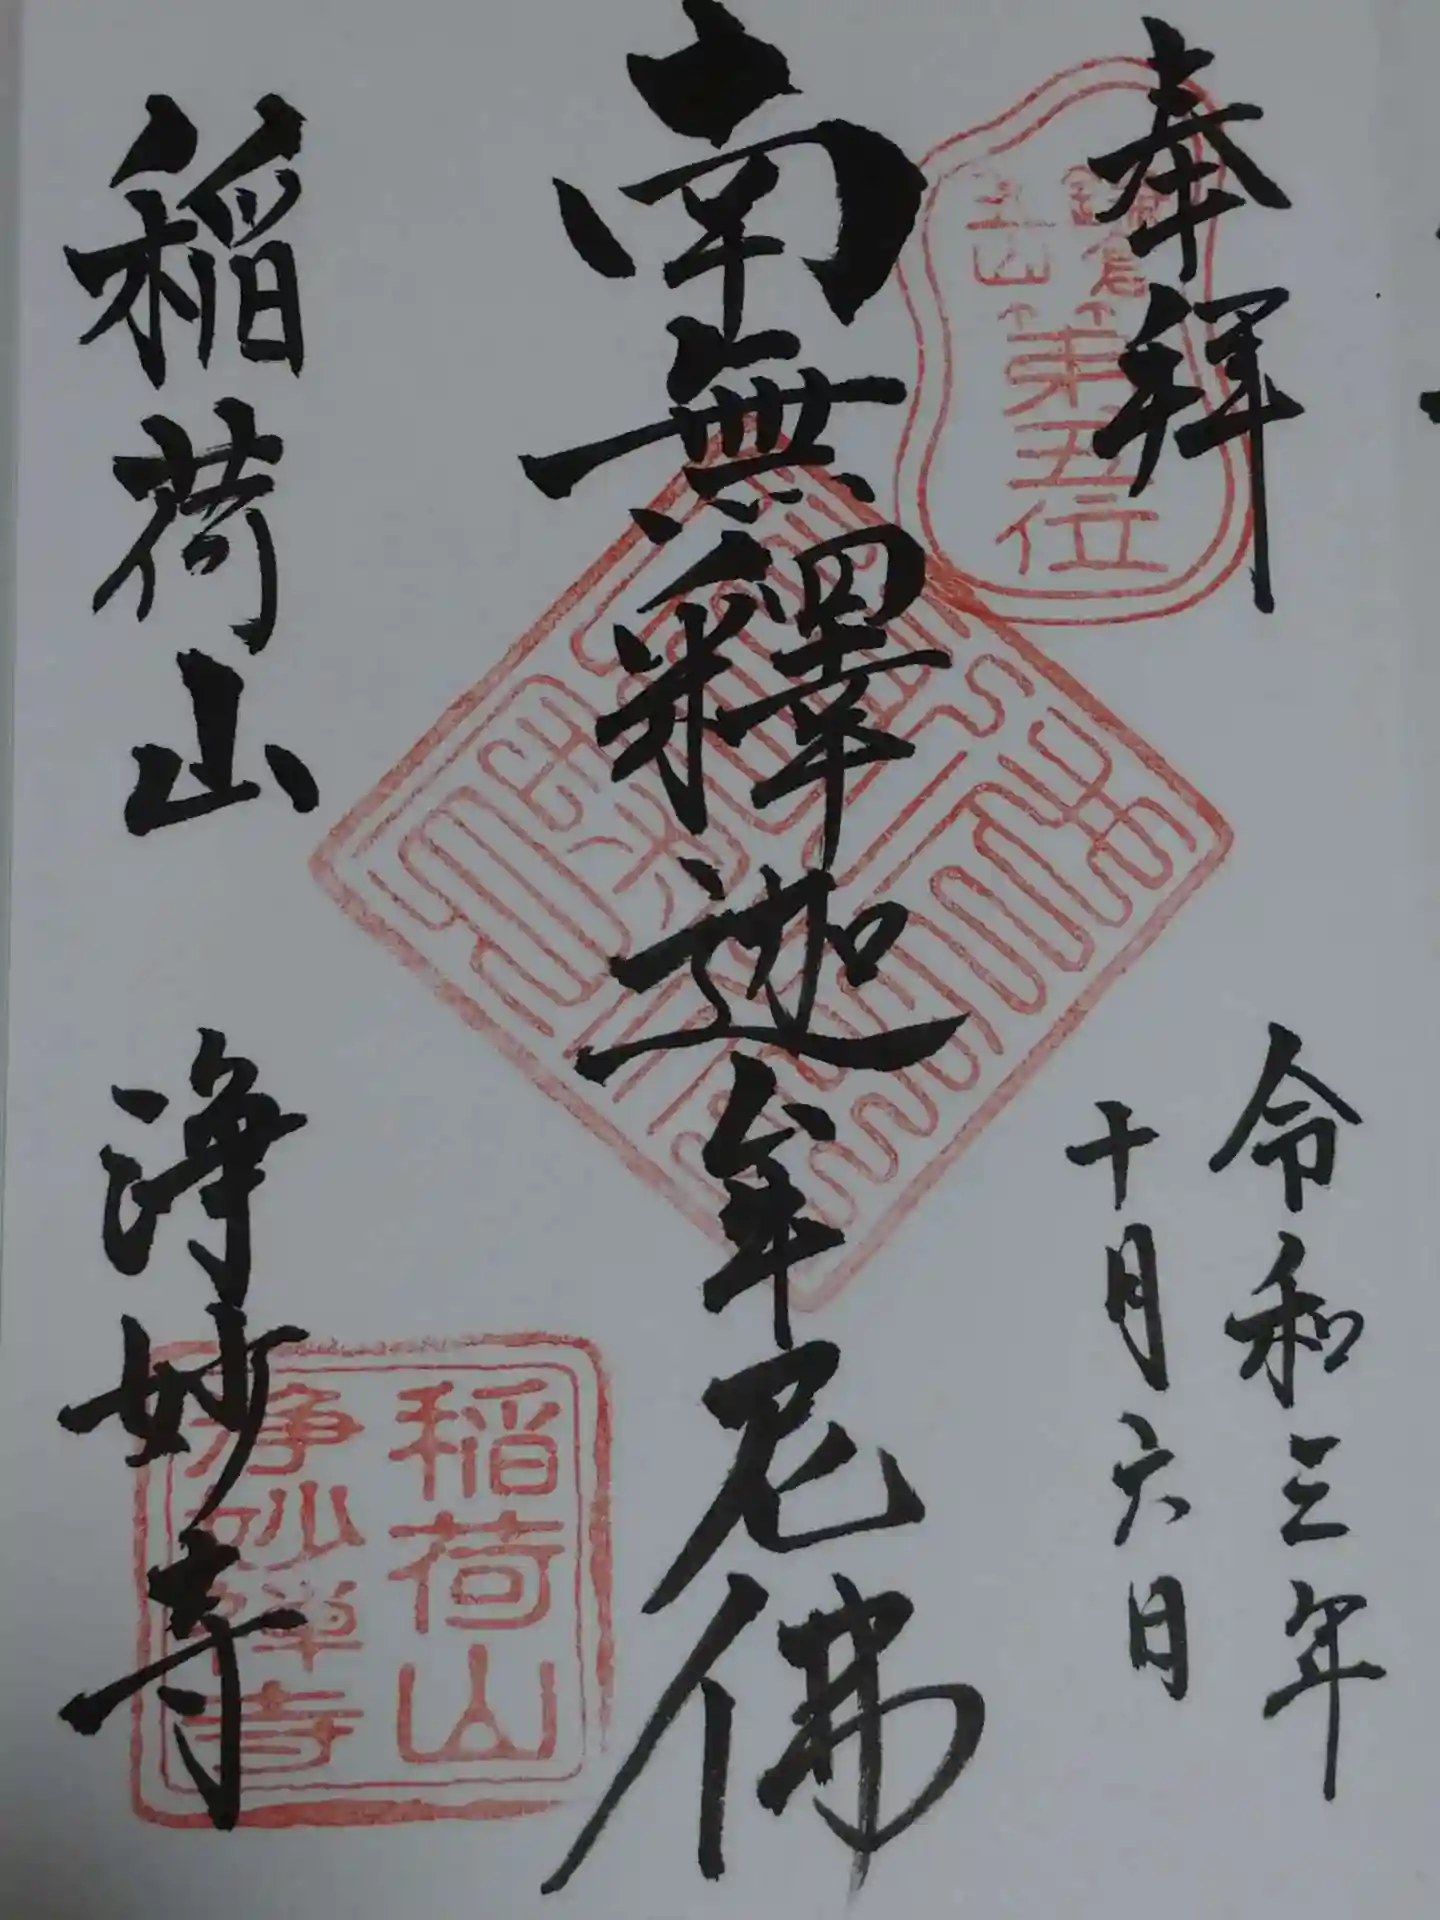 奉拝
鎌倉
五山
第五位
令和三年
十月六日
南無釋迦牟尼佛
稲荷山 浄妙寺
稲荷山
浄妙禅寺